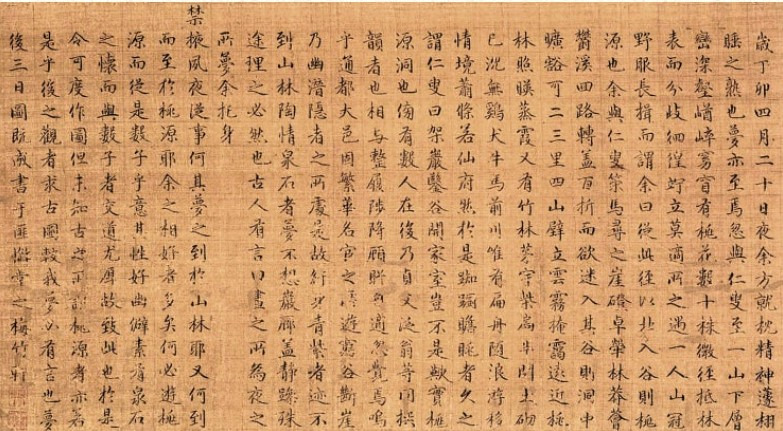 歲丁卯四月二十日夜余方就枕精神蘧栩
睡之熟也夢亦至焉忽與仁叟至一山下層
巒深壑崷崒窈窅有桃花數十株微徑抵林
表而分岐徊徨竚立莫適所之遇一人山冠
野服長揖而謂余曰從此徑以北入谷則桃
源也余與仁叟策馬尋之崖磴卓犖林莽薈
鬱溪回路轉蓋百折而欲迷入其谷則洞中
曠豁可二三里四山壁立雲霧掩靄遠近桃
林照暎蒸霞又有竹林茅宇柴扃半開土砌
已沈無鷄犬牛馬前川唯有扁舟隨浪游移
情境蕭條若仙府然於是踟躕瞻眺者久之
謂仁叟曰架巖鑿谷開家室豈不是歟實桃
源洞也傍有數人在後乃貞父泛翁等同撰
韻者也相與整履陟降顧眄自適忽覺焉嗚
乎通都大邑固繁華名宦之所遊窮谷斷崖
乃幽潛隱者之所處是故紆身青紫者迹不
到山林陶情泉石者夢不想巖廊蓋靜躁殊
途理之必然也古人有言曰晝之所爲夜之
所夢余托身
禁掖夙夜從事何其夢之到於山林耶又何到
而至於桃源耶余之相好者多矣何必遊桃
源而從是數子乎意其性好幽僻素有泉石
之懷而與數子者交道尤厚故致此也於是
令可度作圖但未知古之所謂桃源者亦若
是乎後之觀者求古圖較我夢必有言也夢
後三日圖旣成書于匪懈堂之梅竹軒